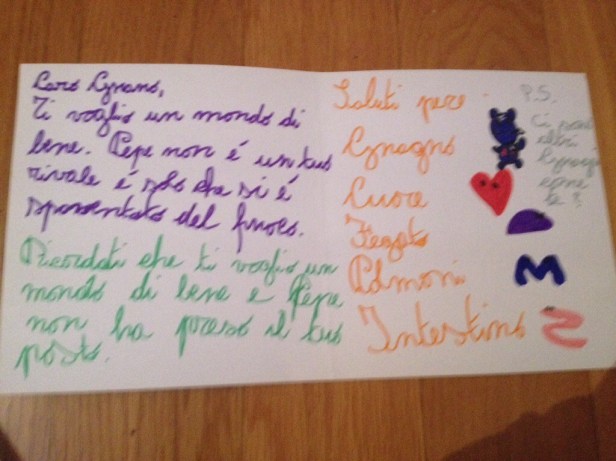 Caro
Ti voglio un mondo di
bene. Pepe non é un tuo
rivale é solo che si é
spaventato del fuoco.
Ricordati che ti voglio un
mondo di bene e Pepe
non ha preso il tuo
posto.
Saluti
Cuore
Fegato
Polmoni
Intestino
P.S.
Ci sono
altri
te?